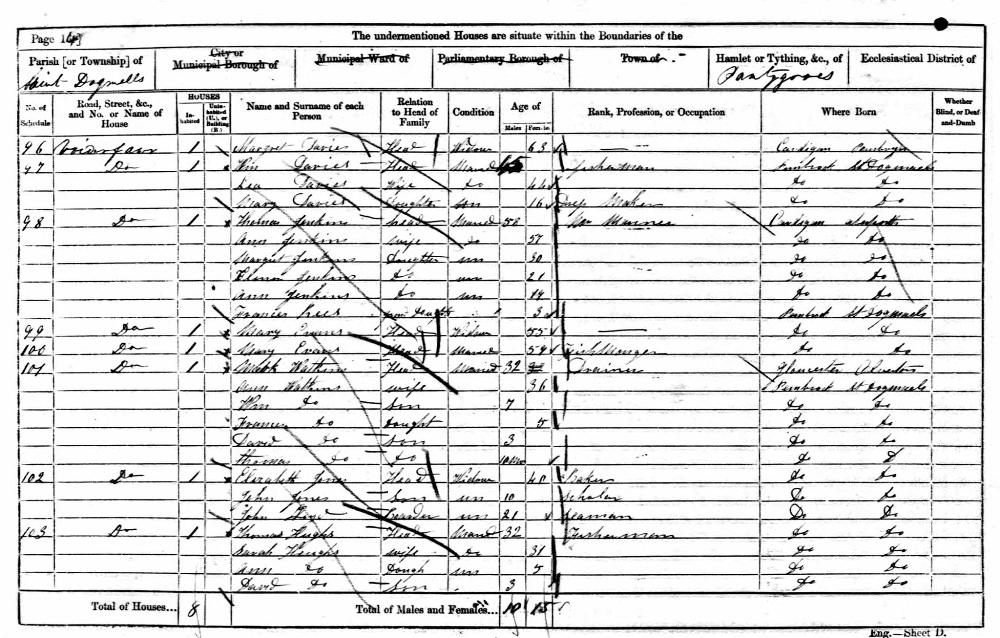 Page 14]
The undermentioned Houses are situate within the Boundaries of the
Parish [or Township] of City or Municipal Borough of Municipal Ward of Parliamentary Borough of Town of Hamlet or Tything, &c., of Ecclesiastical District of
Saint Dogmells
No. of Schedule Road, Street, &c., and No. or Name of House HOUSES Inhabited Uninhabited (U.), or Building (B.) Name and Surname of each Person Relation to Head of Family Condition Age of Males Females Rank, Profession, or Occupation Where Born Whether Blind, or Deaf-and-Dumb
96 1 Margret Davies Head Widow 63 — Cardigan
97 Do 1 Wm Davies Head Married 45 Fisherman Pembrock St Dogmaels
Davies Wife do 44 do do
Mary Davies Daughter 16 Maker do do
98 Do 1 Thomas Jenkins head Married 50 Cardigan
Ann Jenkins wife do 57 do do
Margret Jenkins Daughter un 30 do do
Jenkins do un 21 do do
Ann Jenkins do un 14 do do
Frances Rees 3 Pembrock St Dogmaels
99 Do 1 Mary Evans Head Widow 55 — do do
100 Do 1 Mary Evans Head Married 54 do do
101 Do 1 Mark Watkins Head Married 32 Gloucester
Ann Watkins wife 36 Pembrock St Dogmaels
Wm do son 7 do do
Frances do Daught 5 do do
David do son 3 do do
Thomas do do 10 Mo do do
102 Do 1 Elizabeth Jones Head Widow 40 Baker do do
John Jones Son un 10 Scholar Do do
John Boarder un 21 Seaman Do Do
103 Do 1 Thomas Hughs Head Married 32 Fisherman do do
Sarah Hughs wife do 31 do do
Ann do Dough un 5 do do
David do Son 3 do do
Total of Houses... 8 Total of Males and Females... 10 15
Eng.—Sheet D.